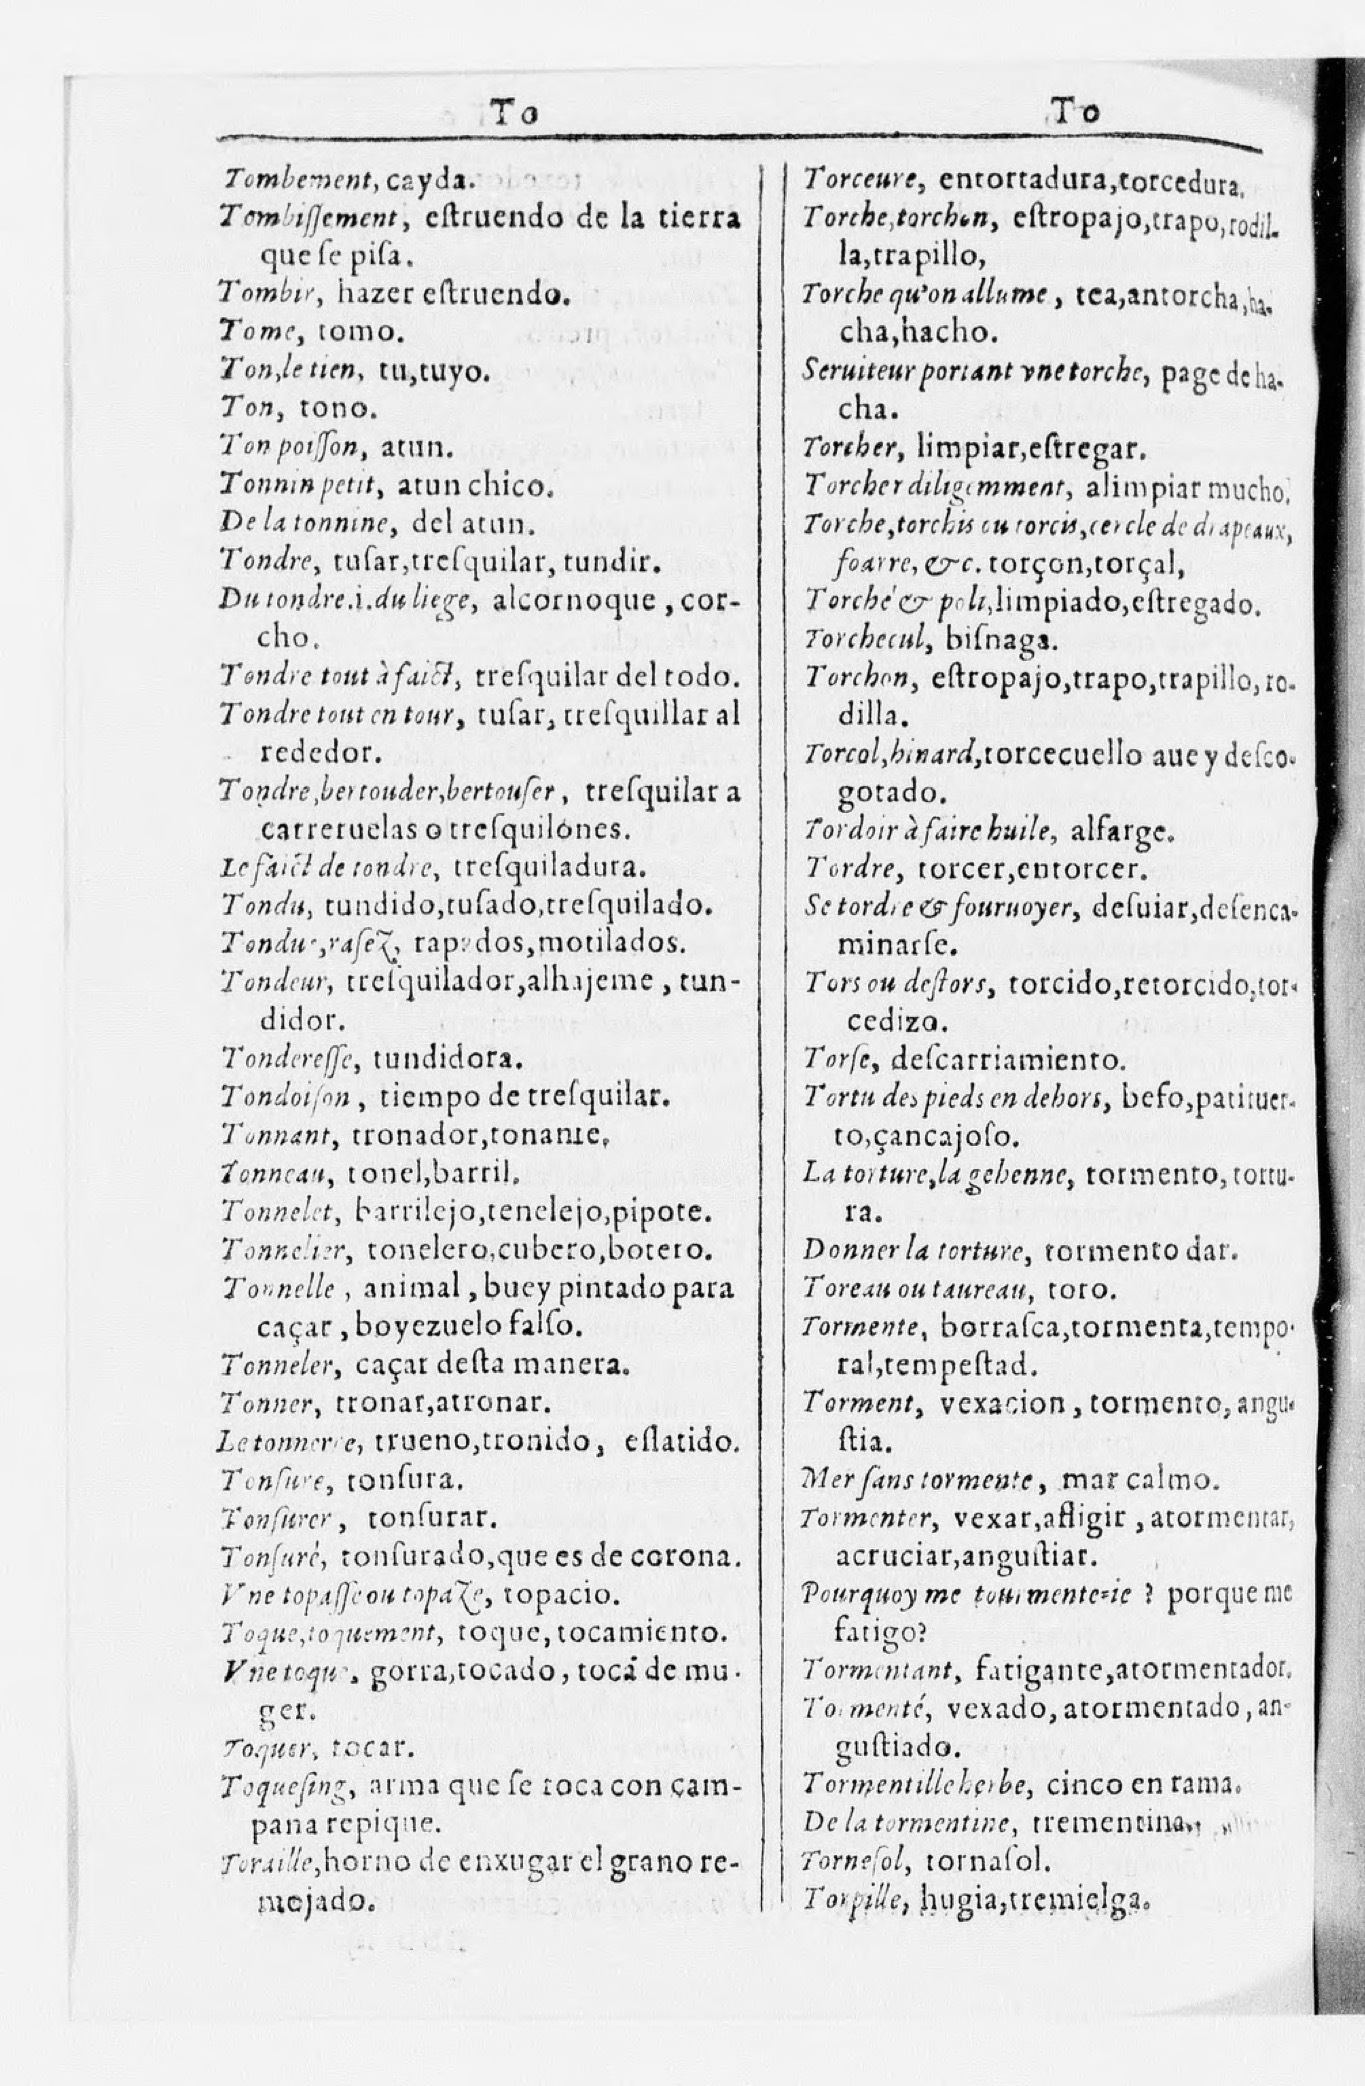 To
Tombement, cayda.
Tombiſſement, eſtruendo de la tierra
que ſe piſa.
Tombir, hazer eſtruendo.
Tome, tomo.
Ton, le tien, tu, tuyo.
Ton, tono.
Ton poiſſon, atun.
Tonnin petit, atun chico.
De la tonnine, del atun.
Tondre, tuſar, treſquilar, tundir.
Du tondre .i. du liege, alcornoque, cor-
cho.
Tondre tout à faict, treſquilar del todo.
Tondre tout en tour, tuſar, treſquillar al
rededor.
Tondre, bertouder, bertouſer, treſquilar a
carreruelas o treſquilones.
Le faict de tondre, treſquiladura.
Tondu, tundido, tuſado, treſquilado.
Tondus, raſez, rapados, motilados.
Tondeur, treſquilador, alhajeme, tun-
didor.
Tondereſſe, tundidora.
Tondoiſon, tiempo de treſquilar.
Tonnant, tronador, tonante,
Tonneau, tonel, barril.
Tonnelet, barrilejo, tenelejo, pipote.
Tonnelier, tonelero, cubero, botero.
Tonnelle, animal, buey pintado para
caçar, boyezuelo falſo.
Tonneler, caçar deſta manera.
Tonner, tronar, atronar.
Le tonnerre, trueno, tronido, eſlatido.
Tonſure, tonſura.
Tonſurer, tonſurar.
Tonſuré, tonſurado, que es de corona.
Vne topaſſe ou topaze, topacio.
Toque, toquement, toque, tocamiento.
Vne toque, gorra, tocado, toca de mu-
ger.
Toquer, tocar.
Toqueſing, arma que ſe toca con cam-
pana repique.
Toraille, horno de enxugar el grano re-
mojado.
To
Torceure, entortadura, torcedura.
Torche, torchon, eſtropajo, trapo, rodil-
la, trapillo,
Torche qu'on allume, tea, antorcha, ha-
cha, hacho.
Seruiteur portant vne torche, page de ha-
cha.
Torcher, limpiar, eſtregar.
Torcher diligemment, alimpiar mucho.
Torche, torchis ou torcis, cercle de drapeaux,
foarre, &c. torçon, torçal,
Torché & poli, limpiado, eſtregado.
Torchecul, biſnaga.
Torchon, eſtropajo, trapo, trapillo, ro-
dilla.
Torcol, hinard, torcecuello aue y deſco-
gotado.
Tordoir à faire huile, alfarge.
Tordre, torcer, entorcer.
Se tordre & fouruoyer, deſuiar, deſenca-
minarſe.
Tors ou deſtors, torcido, retorcido, tor-
cedizo.
Torſe, deſcarriamiento.
Tortu des pieds en dehors, befo, patituer-
to, çancajoſo.
La torture, la gehenne, tormento, tortu-
ra.
Donner la torture, tormento dar.
Toreau ou taureau, toro.
Tormente, borraſca, tormenta, tempo-
ral, tempeſtad.
Torment, vexacion, tormento, angu-
ſtia.
Mer ſans tormente, mar calmo.
Tormenter, vexar, afligir, atormentar,
acruciar, anguſtiar.
Pourquoy me tourmente-ie? porque me
fatigo?
Tormentant, fatigante, atormentador.
Tormenté, vexado, atormentado, an-
guſtiado.
Tormentille herbe, cinco en rama.
De la tormentine, trementina,
Torneſol, tornaſol.
Torpille, hugia, tremielga.